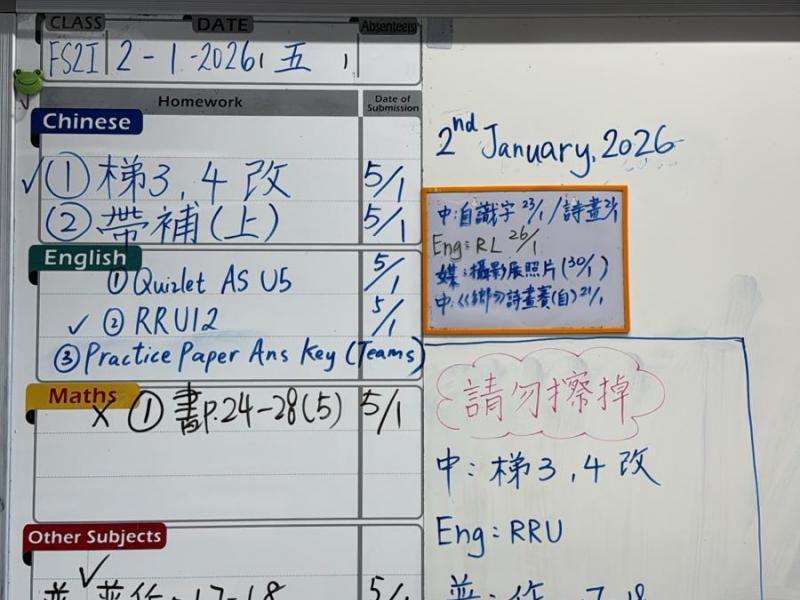 CLASS DATE Absentee(s)
FS2I 2-1-2026, 五
Homework Date of Submission
Chinese
✓ ① 梯3,4改 5/1
② 帶補(上) 5/1
English
① Quizlet AS U5 5/1
✓ ② RRU12 5/1
③ Practice Paper Ans Key (Teams)
Maths
× ① 書p.24-28(5) 5/1
Other Subjects
✓
2nd January, 2026
中:自識字 23/1 / 詩畫
Eng: RL 26/1
媒:攝影展照片(30/1)
詩畫賽(自) 21/1
請勿擦掉
中: 梯3,4改
Eng: RRU